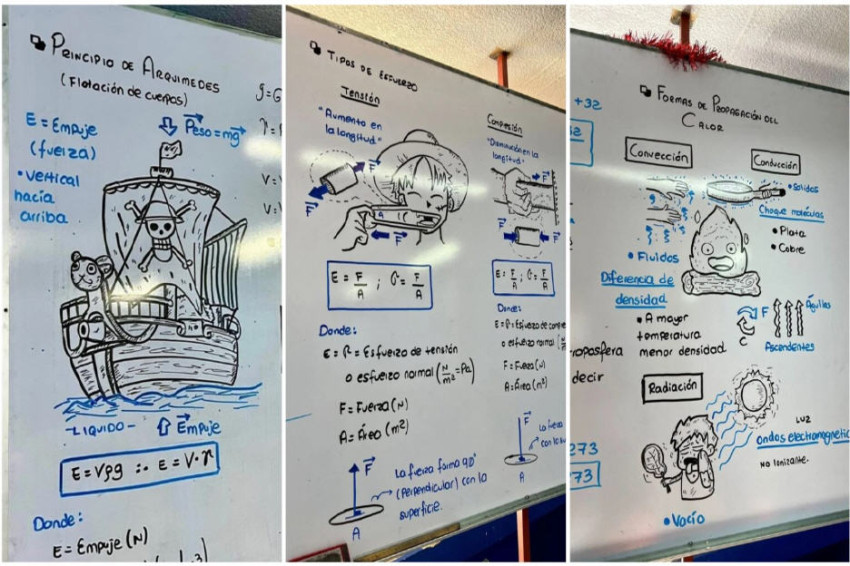 PRINCIPIO DE ARQUIMEDES
(Flotación de cuerpos)
E = Empuje
(fuerza)
• Vertical
hacia
arriba
Peso = mg
LIQUIDO -
Empuje
E = Vρg ∴ E = V·γ
Donde:
E = Empuje (N)
TIPOS DE ESFUERZO
Tensión
"Aumento en
la longitud"
F
F
F
E = F/A ; σ = F/A
Donde:
E = σ = Esfuerzo de tensión
o esfuerzo normal (N/m² = Pa)
F = Fuerza (N)
A = Área (m²)
F
A
La fuerza forma 90°
(Perpendicular) con la
superficie.
Compresión
"Disminución en la
longitud"
F
F
F
F
E = F/A ; σ = F/A
Donde:
E = σ = Esfuerzo de compre
o esfuerzo normal
F = Fuerza (N)
A = Área (m²)
F
A
La fuerza
con la su
+32
FORMAS DE PROPAGACIÓN DEL
CALOR
Convección
• Fluidos
Diferencia de
densidad
• A mayor
temperatura
menor densidad
Conducción
• Solidos
Choque moléculas
• Plata
• Cobre
F
C
Ascendentes
roposfera
decir
273
73
Radiación
LUZ
ondas electromagnetic
NO Ionizante.
• Vacío